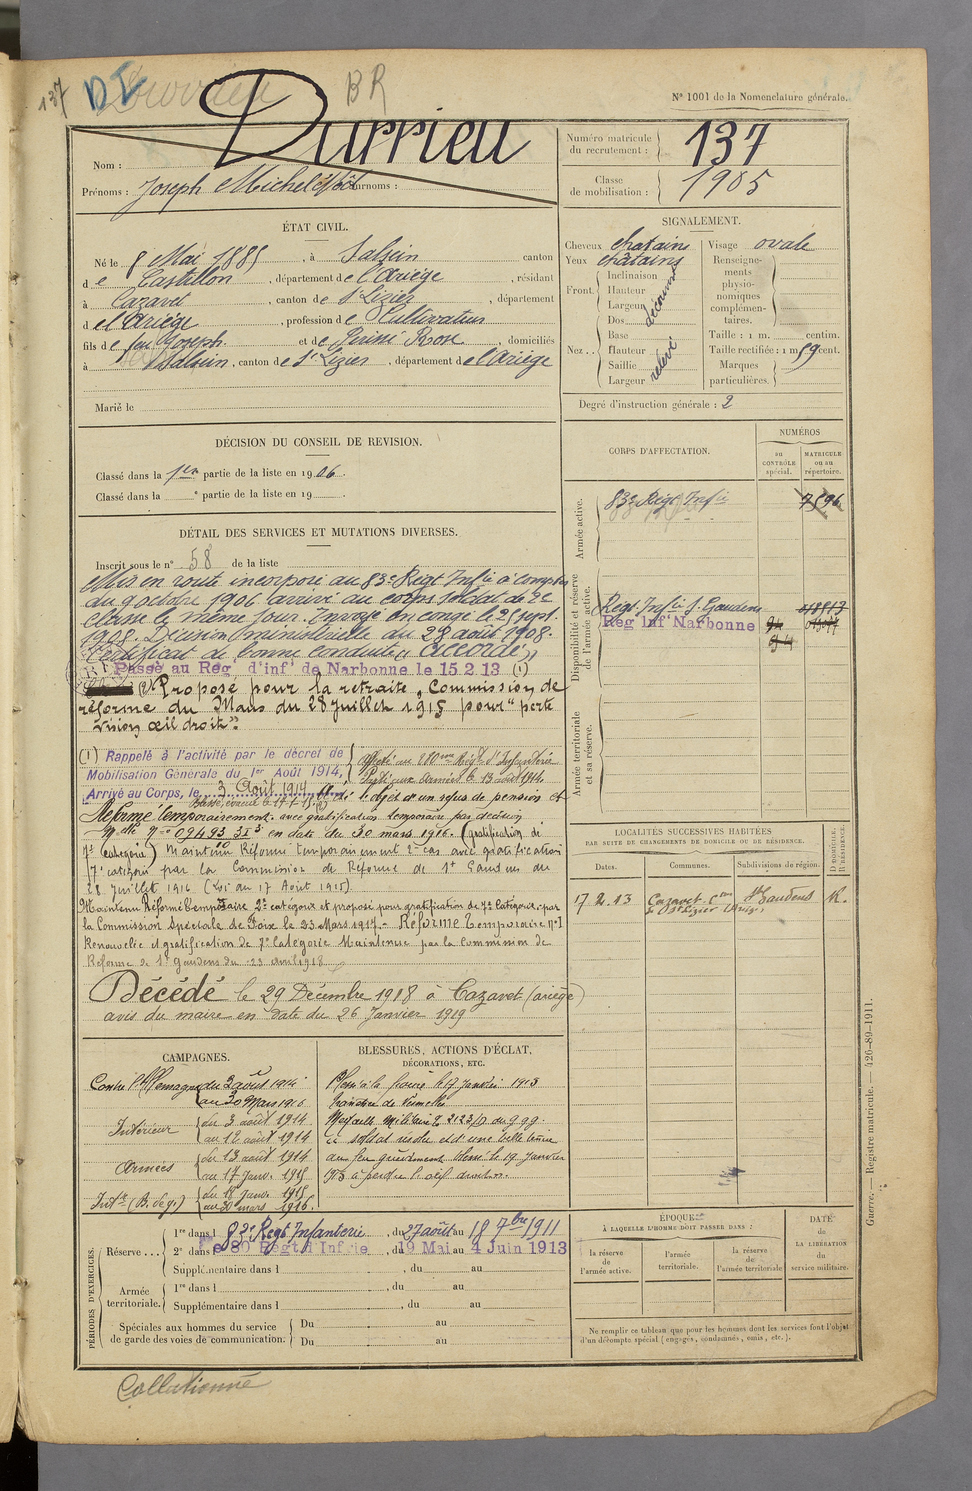 137 Durrieu BR
N° 1001 de la Nomenclature générale.
Durrieu
Nom :
Prénoms : Joseph Michel Surnoms :
Numéro matricule du recrutement : 137
Classe de mobilisation : 1905
ÉTAT CIVIL.
Né le 8 Mai 1885, à Salsein canton
de Castillon, département de l'Ariège, résidant
à Cazavet, canton de St Lizier, département
de l'Ariège, profession de Cultivateur
fils de feu Joseph et de Peirie Rose, domiciliés
à Salsein, canton de St Lizier, département de l'Ariège
Marié le
SIGNALEMENT.
Cheveux chatains
Yeux châtains
Front. Inclinaison
Hauteur
Largeur
découvert
Nez.. Dos
Base
Hauteur
Saillie
Largeur
relevé
Visage ovale
Renseignements physionomiques complémentaires.
Taille : 1 m. centim.
Taille rectifiée : 1 m 59 cent.
Marques particulières.
Degré d'instruction générale : 2
DÉCISION DU CONSEIL DE REVISION.
Classé dans la 1ère partie de la liste en 1906.
Classé dans la e partie de la liste en 19
DÉTAIL DES SERVICES ET MUTATIONS DIVERSES.
Inscrit sous le n° 58 de la liste
Mis en route incorporé au 83e Régt Infie à compter
du 9 octobre 1906 arrivé au corps soldat de 2e
classe le même jour. Envoyé en congé le 25 sept.
1908. Décision ministérielle du 28 août 1908.
Certificat de bonne conduite « accordé »
Passé au Rég. d'inf. de Narbonne le 15.2.13 (1)
(2) Proposé pour la retraite, Commission de
réforme du Mans du 28 Juillet 1915 pour "perte
vision œil droit"
(1) Rappelé à l'activité par le décret de
Mobilisation Générale du 1er Août 1914,
Arrivé au Corps, le 3 Août 1914
Parti aux Armées le 13 août 1914
l'objet d'un refus de pension et
Réformé temporairement avec gratification temporaire par décision
Mlle n° 09493 3I3 en date du 30 mars 1916. (gratification de
7e catégorie) Maintenu Réformé temporairement 2e cas avec gratification
7e catégorie par la Commission de Réforme de St Gaudens du
28 Juillet 1916 (Loi du 17 Août 1915).
Maintenu Réformé temporaire 2e catégorie et proposé pour gratification de 7e catégorie, par
la Commission Spéciale de Foix le 23 Mars 1917. - Réforme Temporaire n°1
Renouvelée et gratification de 7e Catégorie Maintenue par la Commission de
Réforme de St Gaudens du 23 avril 1918
Décédé le 29 Décembre 1918 à Cazavet (ariège)
avis du maire en date du 26 Janvier 1919
CORPS D'AFFECTATION.
NUMÉROS
au CONTRÔLE spécial.
MATRICULE ou au répertoire.
Armée active.
83e Régt Infie 7596
Disponibilité et réserve de l'armée active.
Régt. Infie St. Gaudens
Rég Inf Narbonne
Armée territoriale et sa réserve.
LOCALITÉS SUCCESSIVES HABITÉES
PAR SUITE DE CHANGEMENTS DE DOMICILE OU DE RÉSIDENCE.
Dates. Communes. Subdivisions de région. D. DOMICILE. R. RÉSIDENCE.
17.2.13 Cazavet Cton de St Lizier Ariège St Gaudens R.
CAMPAGNES.
Contre l'Allemagne du 3 août 1914
au 30 Mars 1916
Intérieur du 3 août 1914
au 12 août 1914
Armées du 13 août 1914
au 17 janv. 1915
Intr (B. de g.) du 18 janv. 1915
au 30 mars 1916.
BLESSURES, ACTIONS D'ÉCLAT,
DÉCORATIONS, ETC.
Médaille Militaire
soldat et d'une belle tenue
au feu grièvement blessé le 17 Janvier
1915 a perdu l'œil droit.
PÉRIODES D'EXERCICES.
Réserve... 1re dans l 83e Régt Infanterie, du 27 août au 18 7bre 1911
2e dans l e 80 Régt d'Infrie, du 19 Mai au 4 Juin 1913
Supplémentaire dans l, du au
Armée territoriale. 1re dans l, du au
Supplémentaire dans l, du au
Spéciales aux hommes du service de garde des voies de communication. Du au
Du au
ÉPOQUE
À LAQUELLE L'HOMME DOIT PASSER DANS :
la réserve de l'armée active.
l'armée territoriale.
la réserve de l'armée territoriale
DATE de LA LIBÉRATION du service militaire.
Ne remplir ce tableau que pour les hommes dont les services font l'objet
d'un décompte spécial (engagés, condamnés, omis, etc.).
Guerre. — Registre matricule. — 426-89-1911.
Collationné